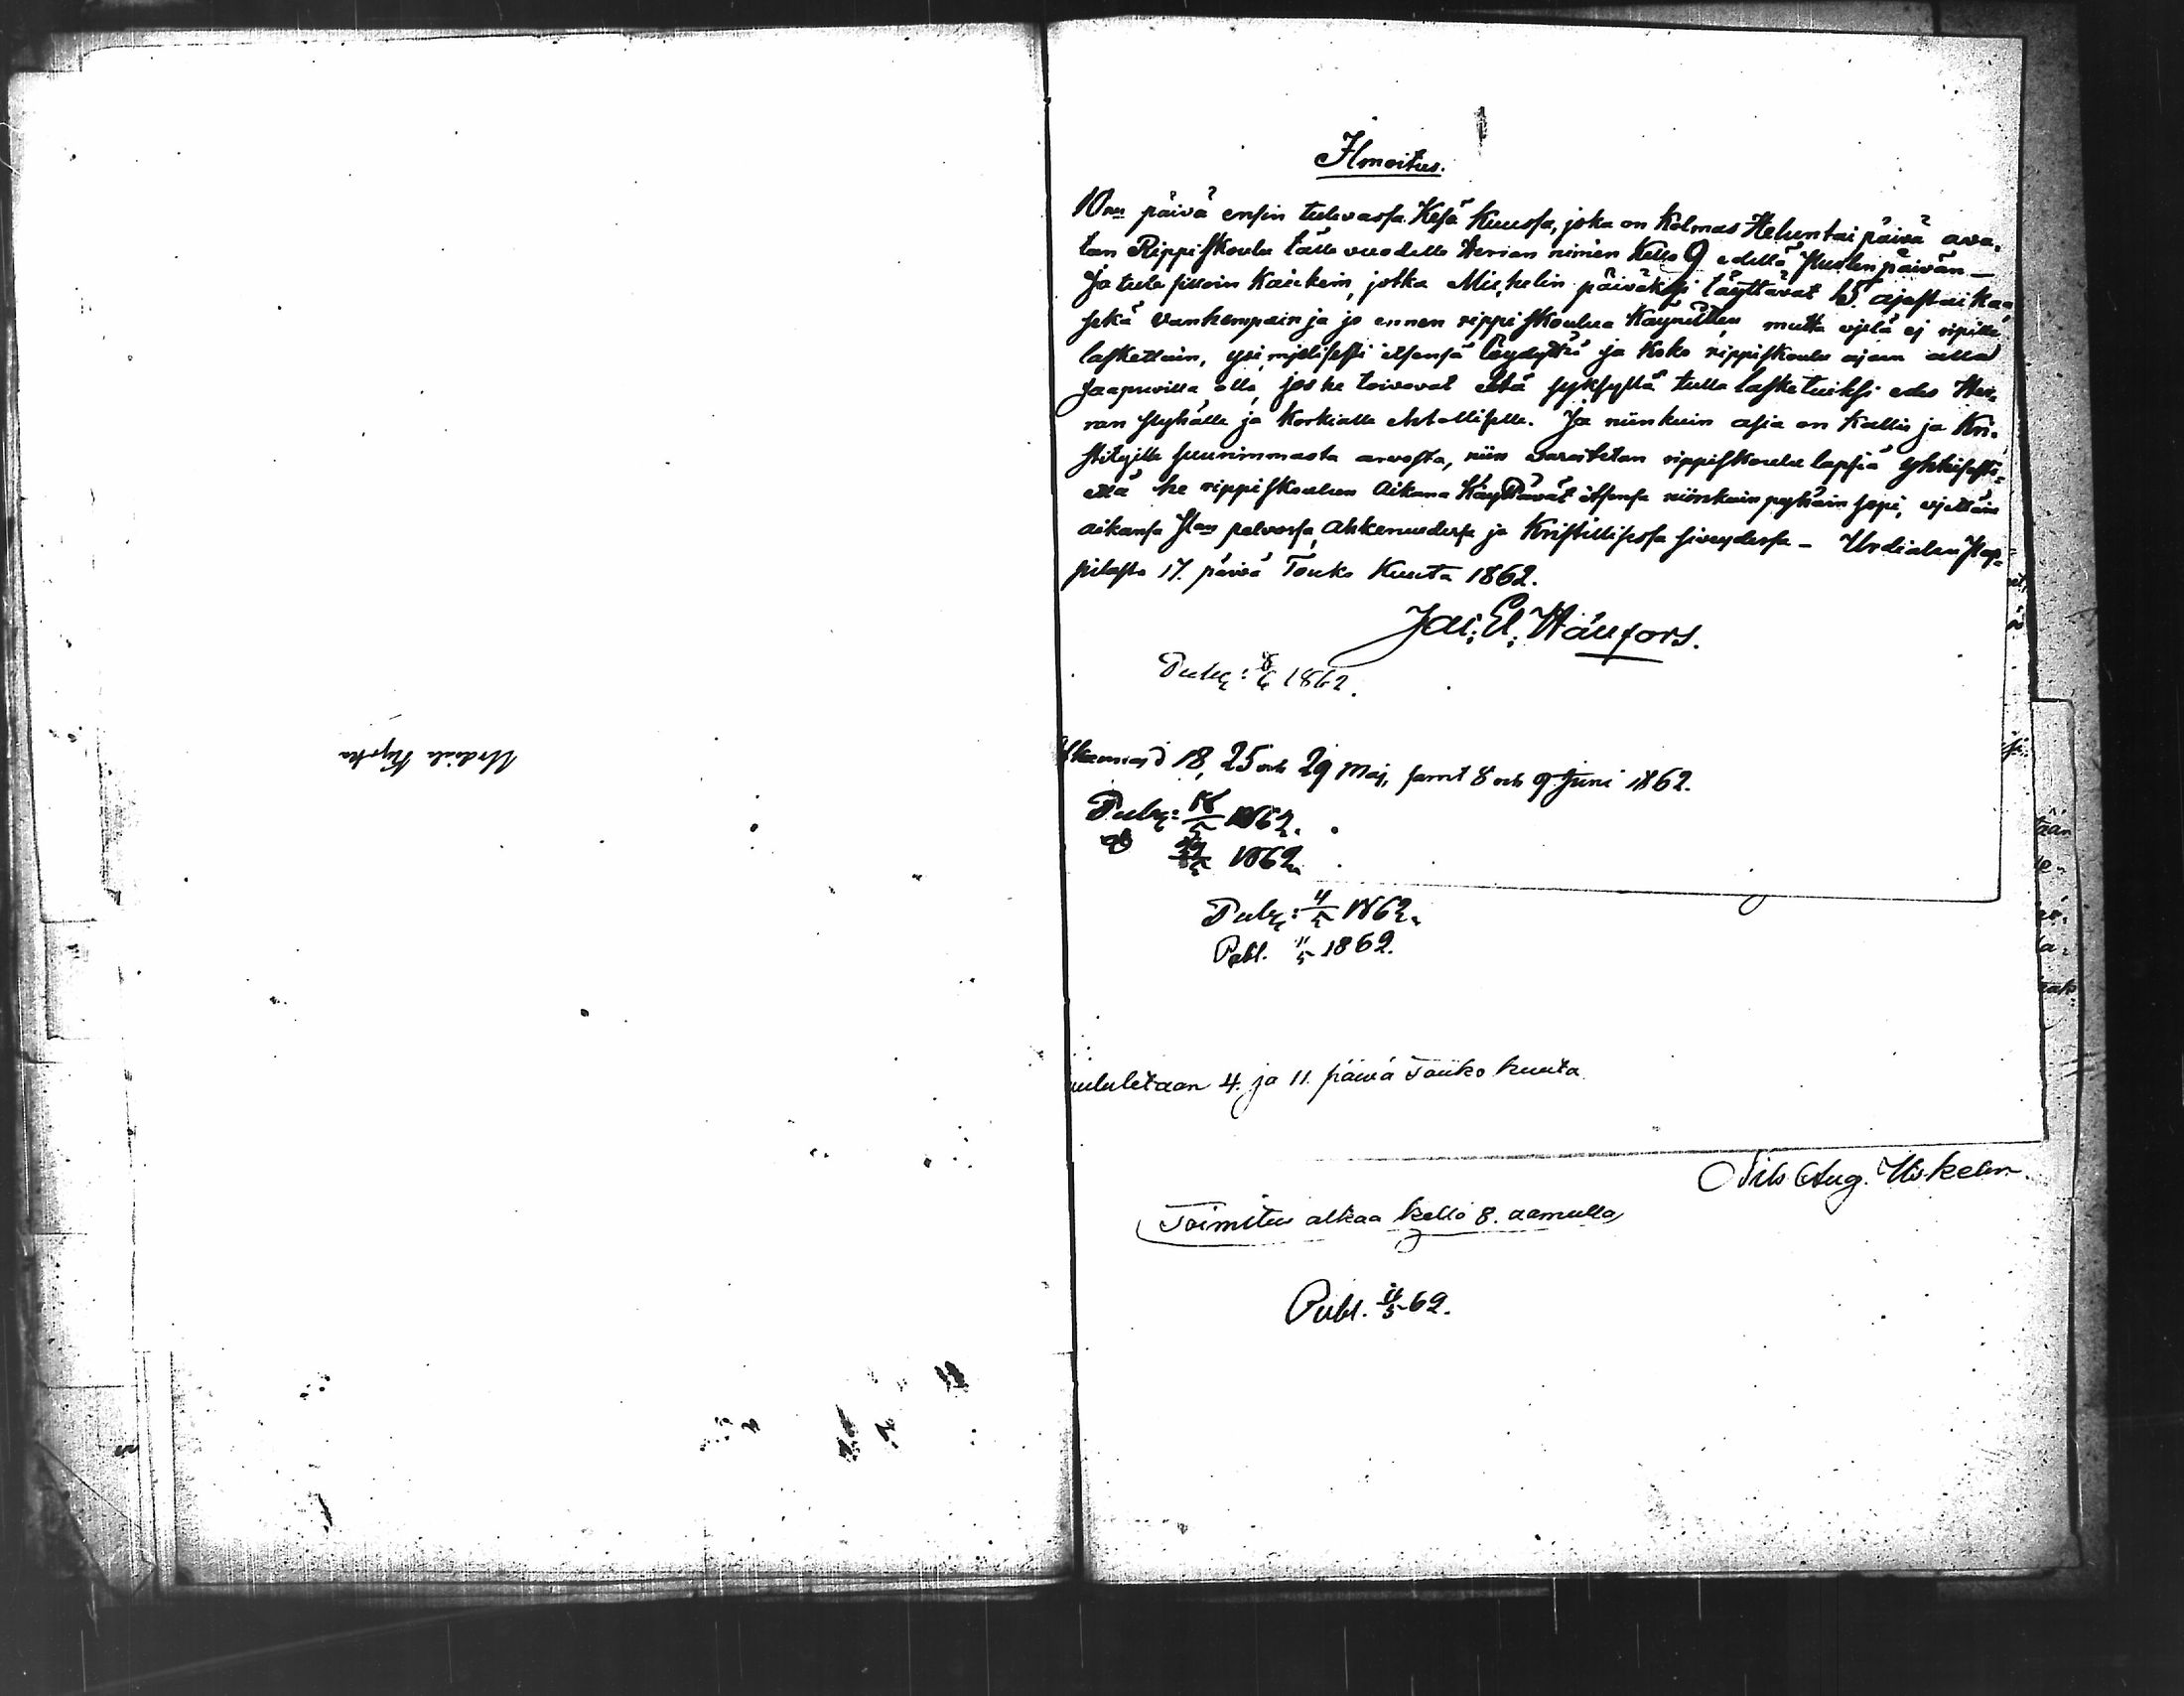 Urdiala Kyrka
Ilmoitus.
10nen päivä ensin tulevassa Kesä Kuussa, joka on Kolmas Heluntai päivä ava,
tan Rippiskoulu tälle vuodelle Herran nimen Kello 9 edellä Puolen päivän_
Ja tule silloin Kaickein, jotka Michelin päiväksi täyttävät 15 ajastaikaa,
sekä vanhempain ja jo ennen rippiskoulua Käynitten mutta vjelä ej ripille
lasketluin, itsensä löydyttä ja Koko rippiskoulu ajan alla
saapuvilla olla, jos he toivovat että syksyllä tulla lasketuiksi edes Her,
ran Pyhälle ja Korkialle ehtolliselle. Ja niinkuin asia on Kallis ja Kri,
stityille suurimmasta arvosta, niin varoitetan rippiskoulu lapsia yhteisesti
että he rippiskoulun aikana Käyttävät itsensä niinkuin pyhäin sopi, vjettäin
aikansa Jlan pelvossa, Ahkeruudessa ja Kristillisessä siveydessä _ Urdialan Pap=
pilasta 17. päivä Touko Kuuta 1862.
Jac: El: Wänfors.
Publ: 8/6 1862.
18, 25 och 29 Maj, samt 8 och 9 Juni 1862.
Publ: 18/5 1862.
1862.
Publ: 11/5 1862.
Publ. 11/5 1862.
uulutetaan 4. ja 11. päivä Touko kuuta
Nils Aug.
Toimitus alkaa kello 8. aamulla
Publ. 11/5 62.